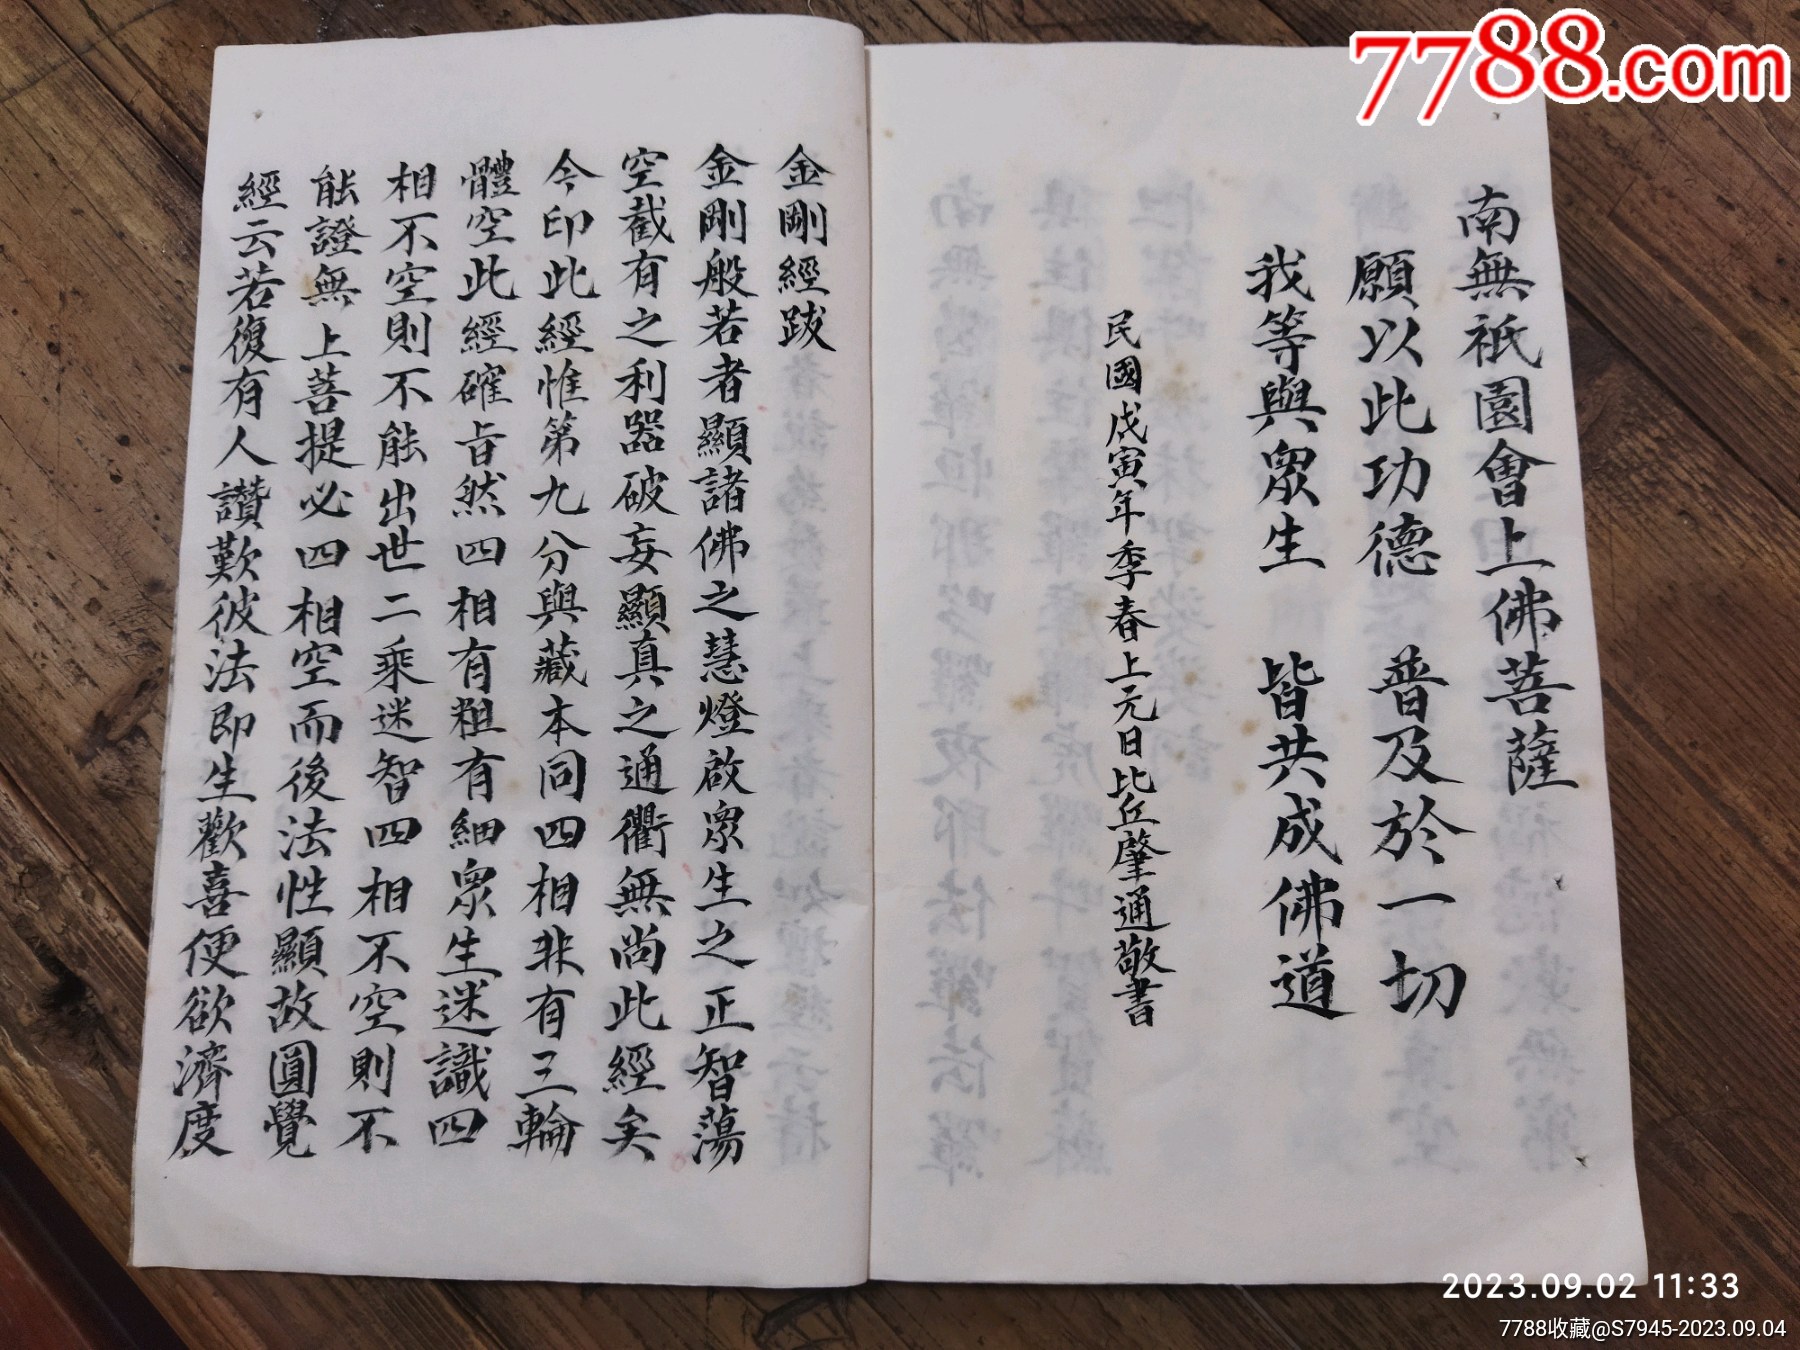 南無祇園會上佛菩薩
願以此功德 普及於一切
我等與眾生 皆共成佛道
民國戊寅年季春上元日比丘肇通敬書
金剛經跋
金剛般若者顯諸佛之慧燈啟眾生之正智蕩
空截有之利器破妄顯真之通衢無尚此經矣
今印此經惟第九分與藏本同四相非有三輪
體空此經確旨然四相有粗有細眾生迷識四
相不空則不能出世二乘迷智四相不空則不
能證無上菩提必四相空而後法性顯故圓覺
經云若復有人讚歎彼法即生歡喜便欲濟度
7788.com
2023.09.02 11:33
7788收藏@S7945-2023.09.04